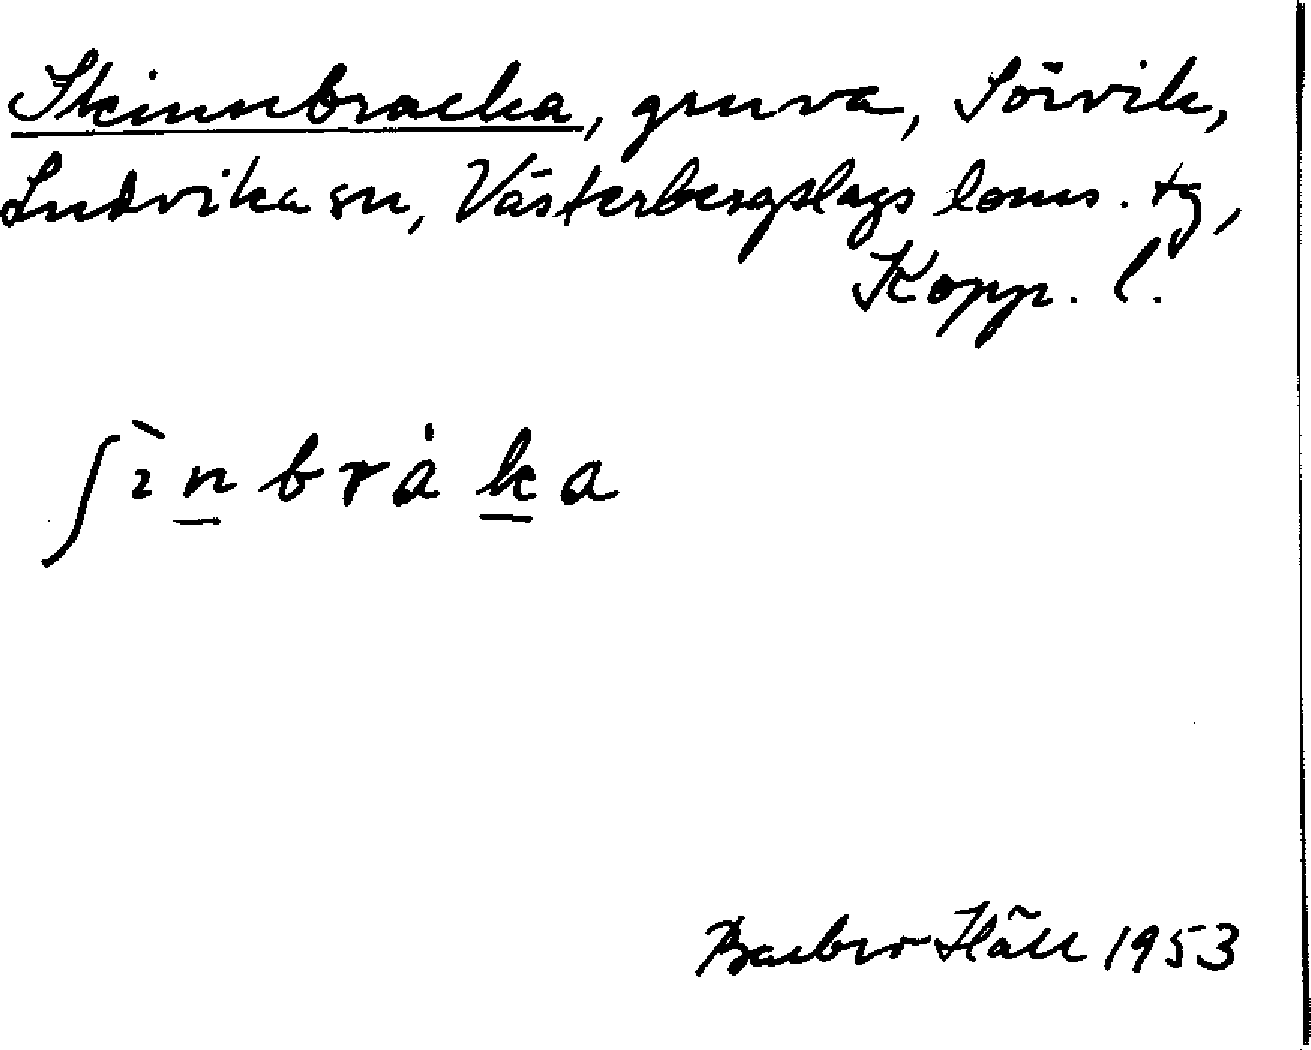 Skinnbracka, gruva, Sörvik,
Ludvika sn, Västerbergslags doms. tg,
Kopp. l.
ʃı̀n̲bråk̲a
Barbro Häll 1953